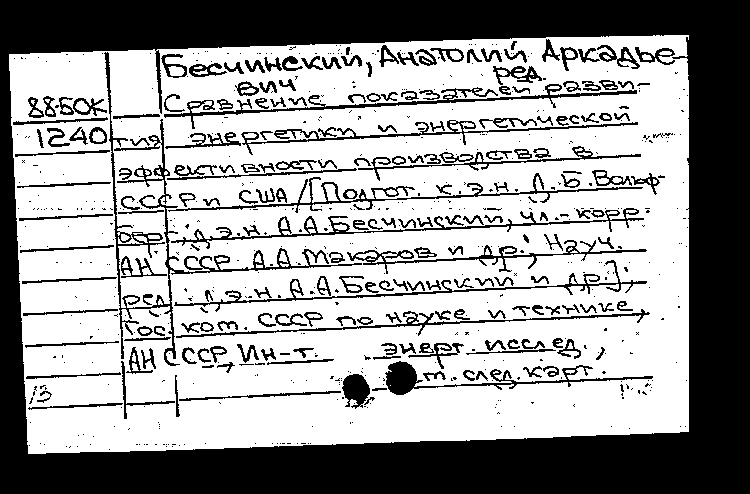 Бесчинский, Анатолий Аркадье-
вич ред.
88-50к Сравнение показателей разви-
1240 тия энергетики и энергетической
эффективности производства в
СССР и США / [Подгот. к.э.н. Д.Б. Вольф-
берг, д.э.н. А.А. Бесчинский, чл.-корр.
АН СССР А.А. Макаров и др.; Науч.
ред.: д.э.н. А.А. Бесчинский и др.];
Гос. ком. СССР по науке и технике,
АН СССР, Ин-т энерг. исслед.,
см. след. карт.
13